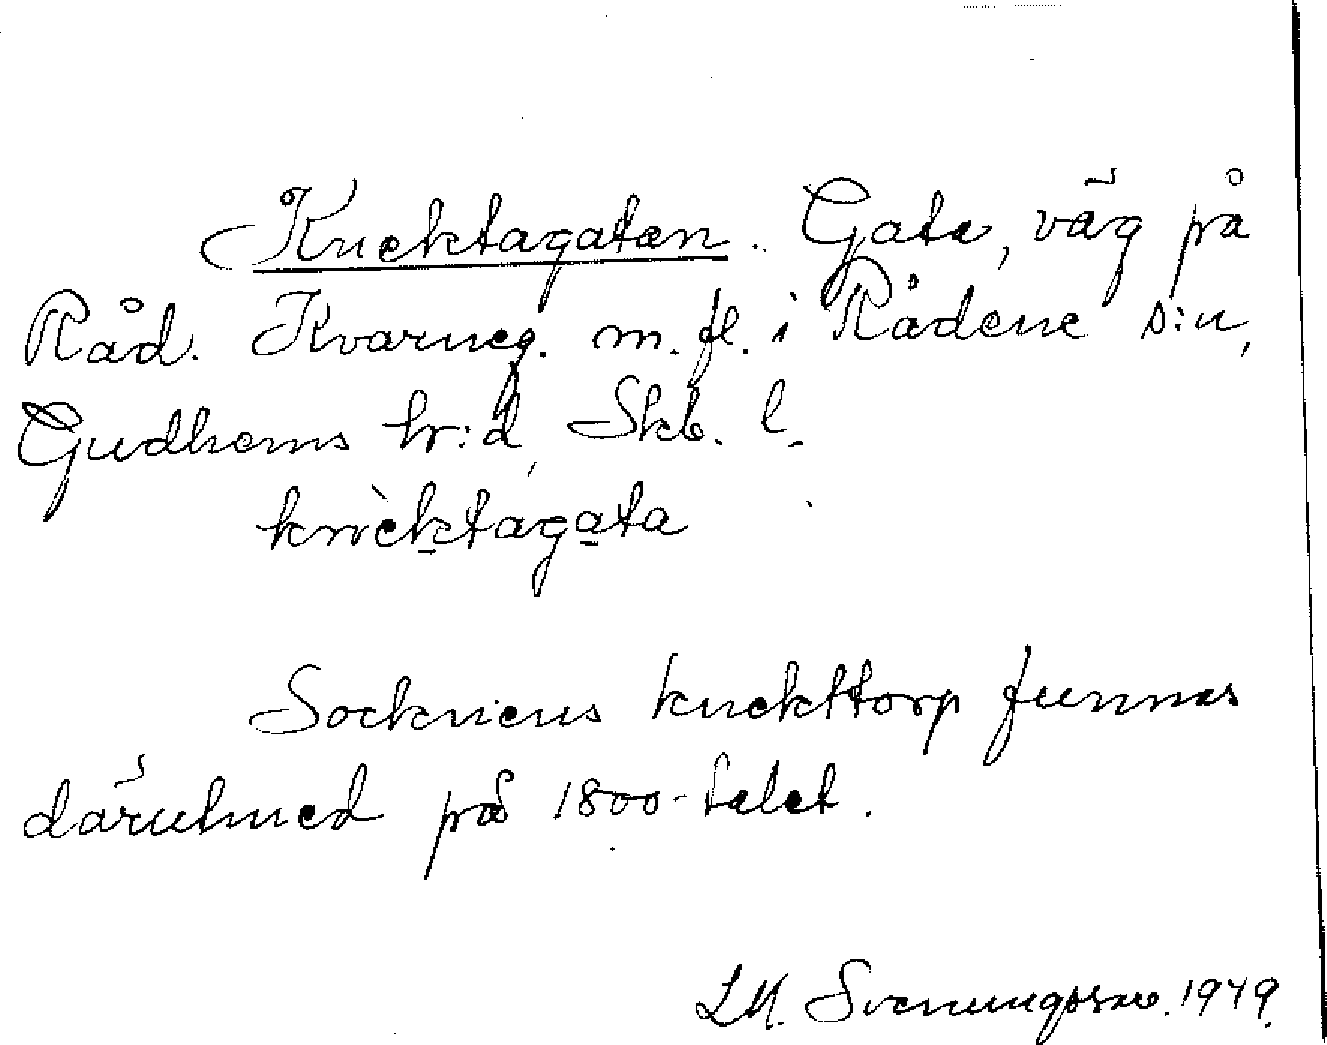 Knektagatan. Gata, väg på
Råd. Kvarneg. m. fl. i Rådene s:n,
Gudhems hr:d, Skb. l.
knèktágata
Socknens knekttorp funnos
därutmed på 1800-talet.
L.M. Svenungsson. 1949.